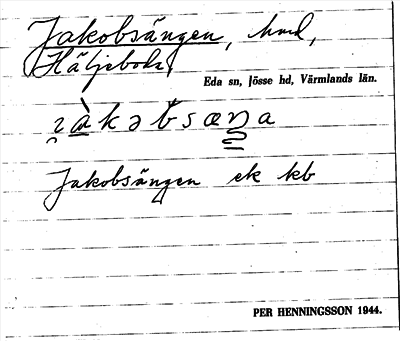 Jakobsängen, hmd,
(Häljeboda)
Eda sn, Jösse hd, Värmlands län.
Jakobsängen ek kb
PER HENNINGSSON 1944.